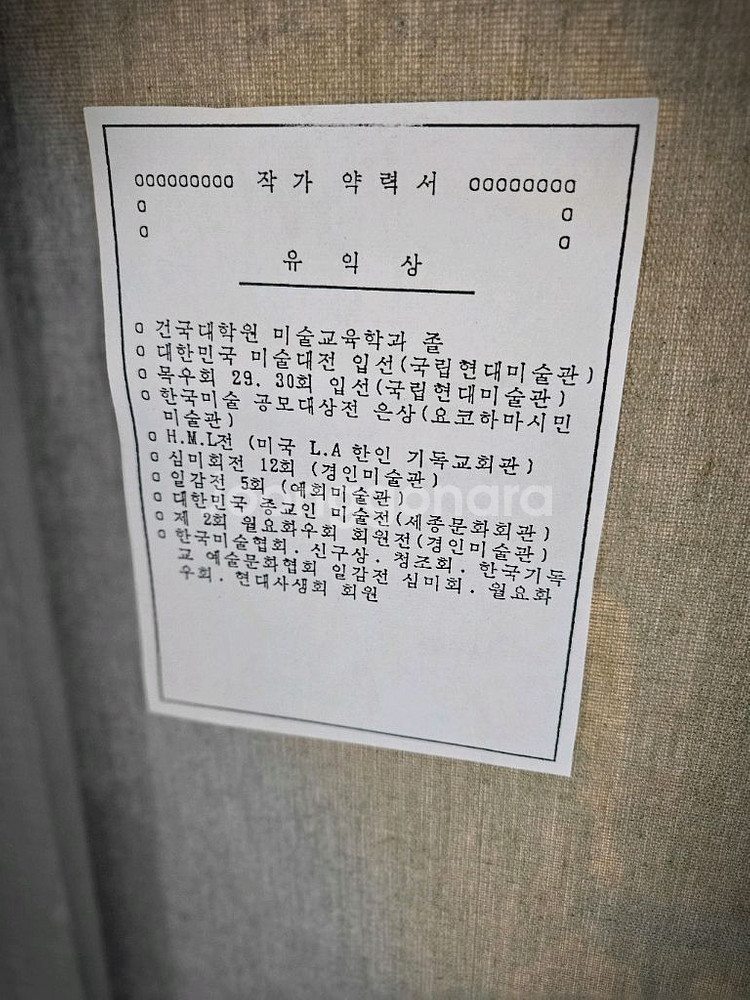 ooooooooo 작 가 약 력 서 oooooooo
o o
o o
유 익 상
o 건국대학원 미술교육학과 졸
o 대한민국 미술대전 입선(국립현대미술관)
o 목우회 29. 30회 입선(국립현대미술관)
o 한국미술 공모대상전 은상(요코하마시민
미술관)
o H.M.L전 (미국 L.A 한인 기독교회관)
o 십미회전 12회 (경인미술관)
o 일감전 5회 (예회미술관)
o 대한민국 종교인 미술전(세종문화회관)
o 제 2회 월요화우회 회원전(경인미술관)
o 한국미술협회. 신구상. 청조회. 한국기독
교 예술문화협회 일감전 십미회. 월요화
우회. 현대사생회 회원